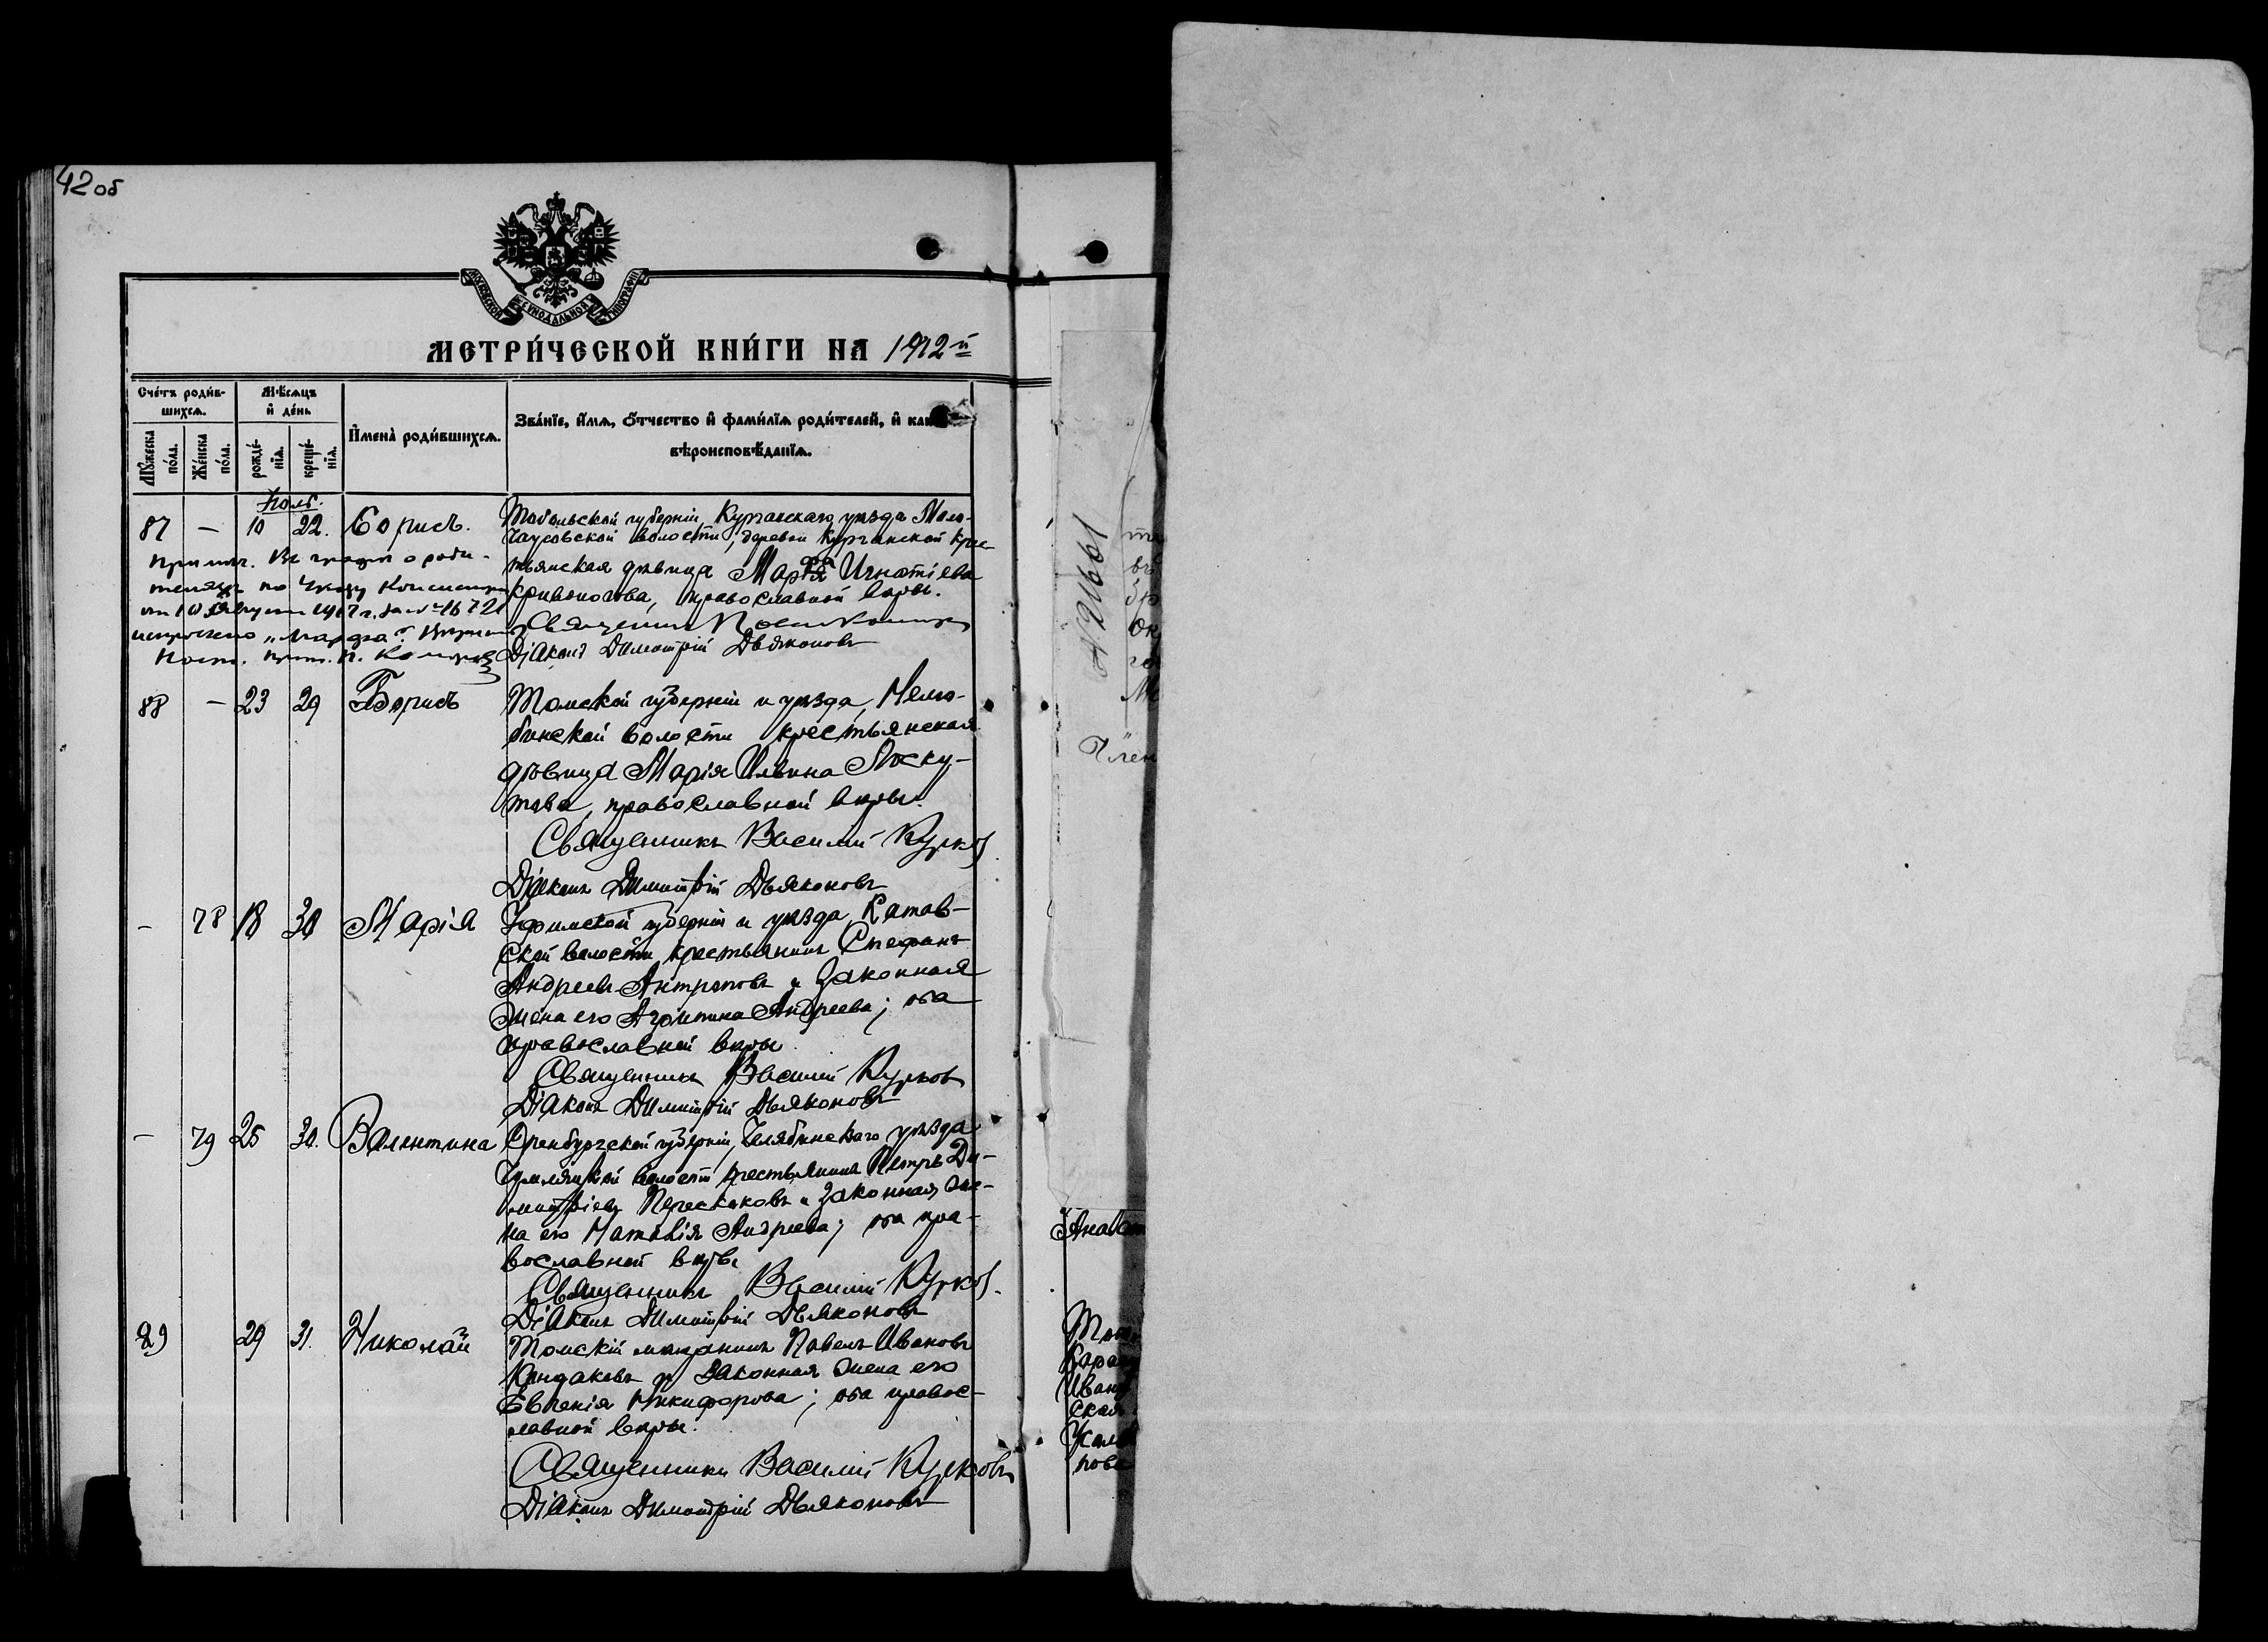 42 об
МОСКОВСКОЙ СѴНОДАЛЬНОЙ ТИПОГРАФІИ
МЕТРИ́ЧЕСКОЙ КНИ́ГИ НА 1912 й
Сче́тъ роди́в-
шихсѧ.
Мѣ́сѧцъ
и҆ де́нь
И҆мена̀ роди́вшихсѧ.
Зва́нїе, и҆́мѧ, ѻ҆́тчество и҆ фами́лїѧ роди́телей, и҆ как
вѣроисповѣ́данїѧ.
Мꙋ́жеска
по́ла.
Же́нска
по́ла.
рожде́-
нїѧ.
креще́-
нїѧ.
Іюль.
87 — 10 22. Борисъ. Тобольской губерніи, Курганскаго уѣзда Мало-
чаусовской волости, деревни Курганской крес-
тьянская дѣвица Марфа Игнатіева
Кривоногова, православной вѣры.
Священникъ
Діаконъ Димитрій Дьяконовъ
Примѣч. Въ графѣ о роди-
теляхъ по Указу Консисторіи
исправлено „Марфа".
88 — 23 29 Борисъ Томской губерніи и уѣзда, Нелю-
бинской волости крестьянская
дѣвица Марія Ильина Лоску-
това, православной вѣры.
Священникъ Василій Курков
Діаконъ Димитрій Дьяконовъ
— 78 18 30 Марія Уфимской губерніи и уѣзда, Катав-
ской волости, крестьянинъ Стефанъ
Андреевъ Антроповъ и законная
жена его Агриппина Андреева; оба
православной вѣры
Священникъ Василій Курков
Діаконъ Димитрій Дьяконовъ
— 79 25 30. Валентина Оренбургской губерніи, Челябинскаго уѣзда
волости крестьянинъ Петръ Ди-
митріевъ Перескоковъ и законная же-
на его Наталія Андреева; оба пра-
вославной вѣры
Священникъ Василій Курков.
Діаконъ Димитрій Дьяконовъ
89 29 31. Николай Томскій мѣщанинъ Павелъ Ивановъ
Кандаковъ и законная жена его
Евгенія Никифорова; оба правос-
лавной вѣры.
Священникъ Василій Курковъ
Діаконъ Димитрій Дьяконовъ
№ 21661
Член
Иван
ская